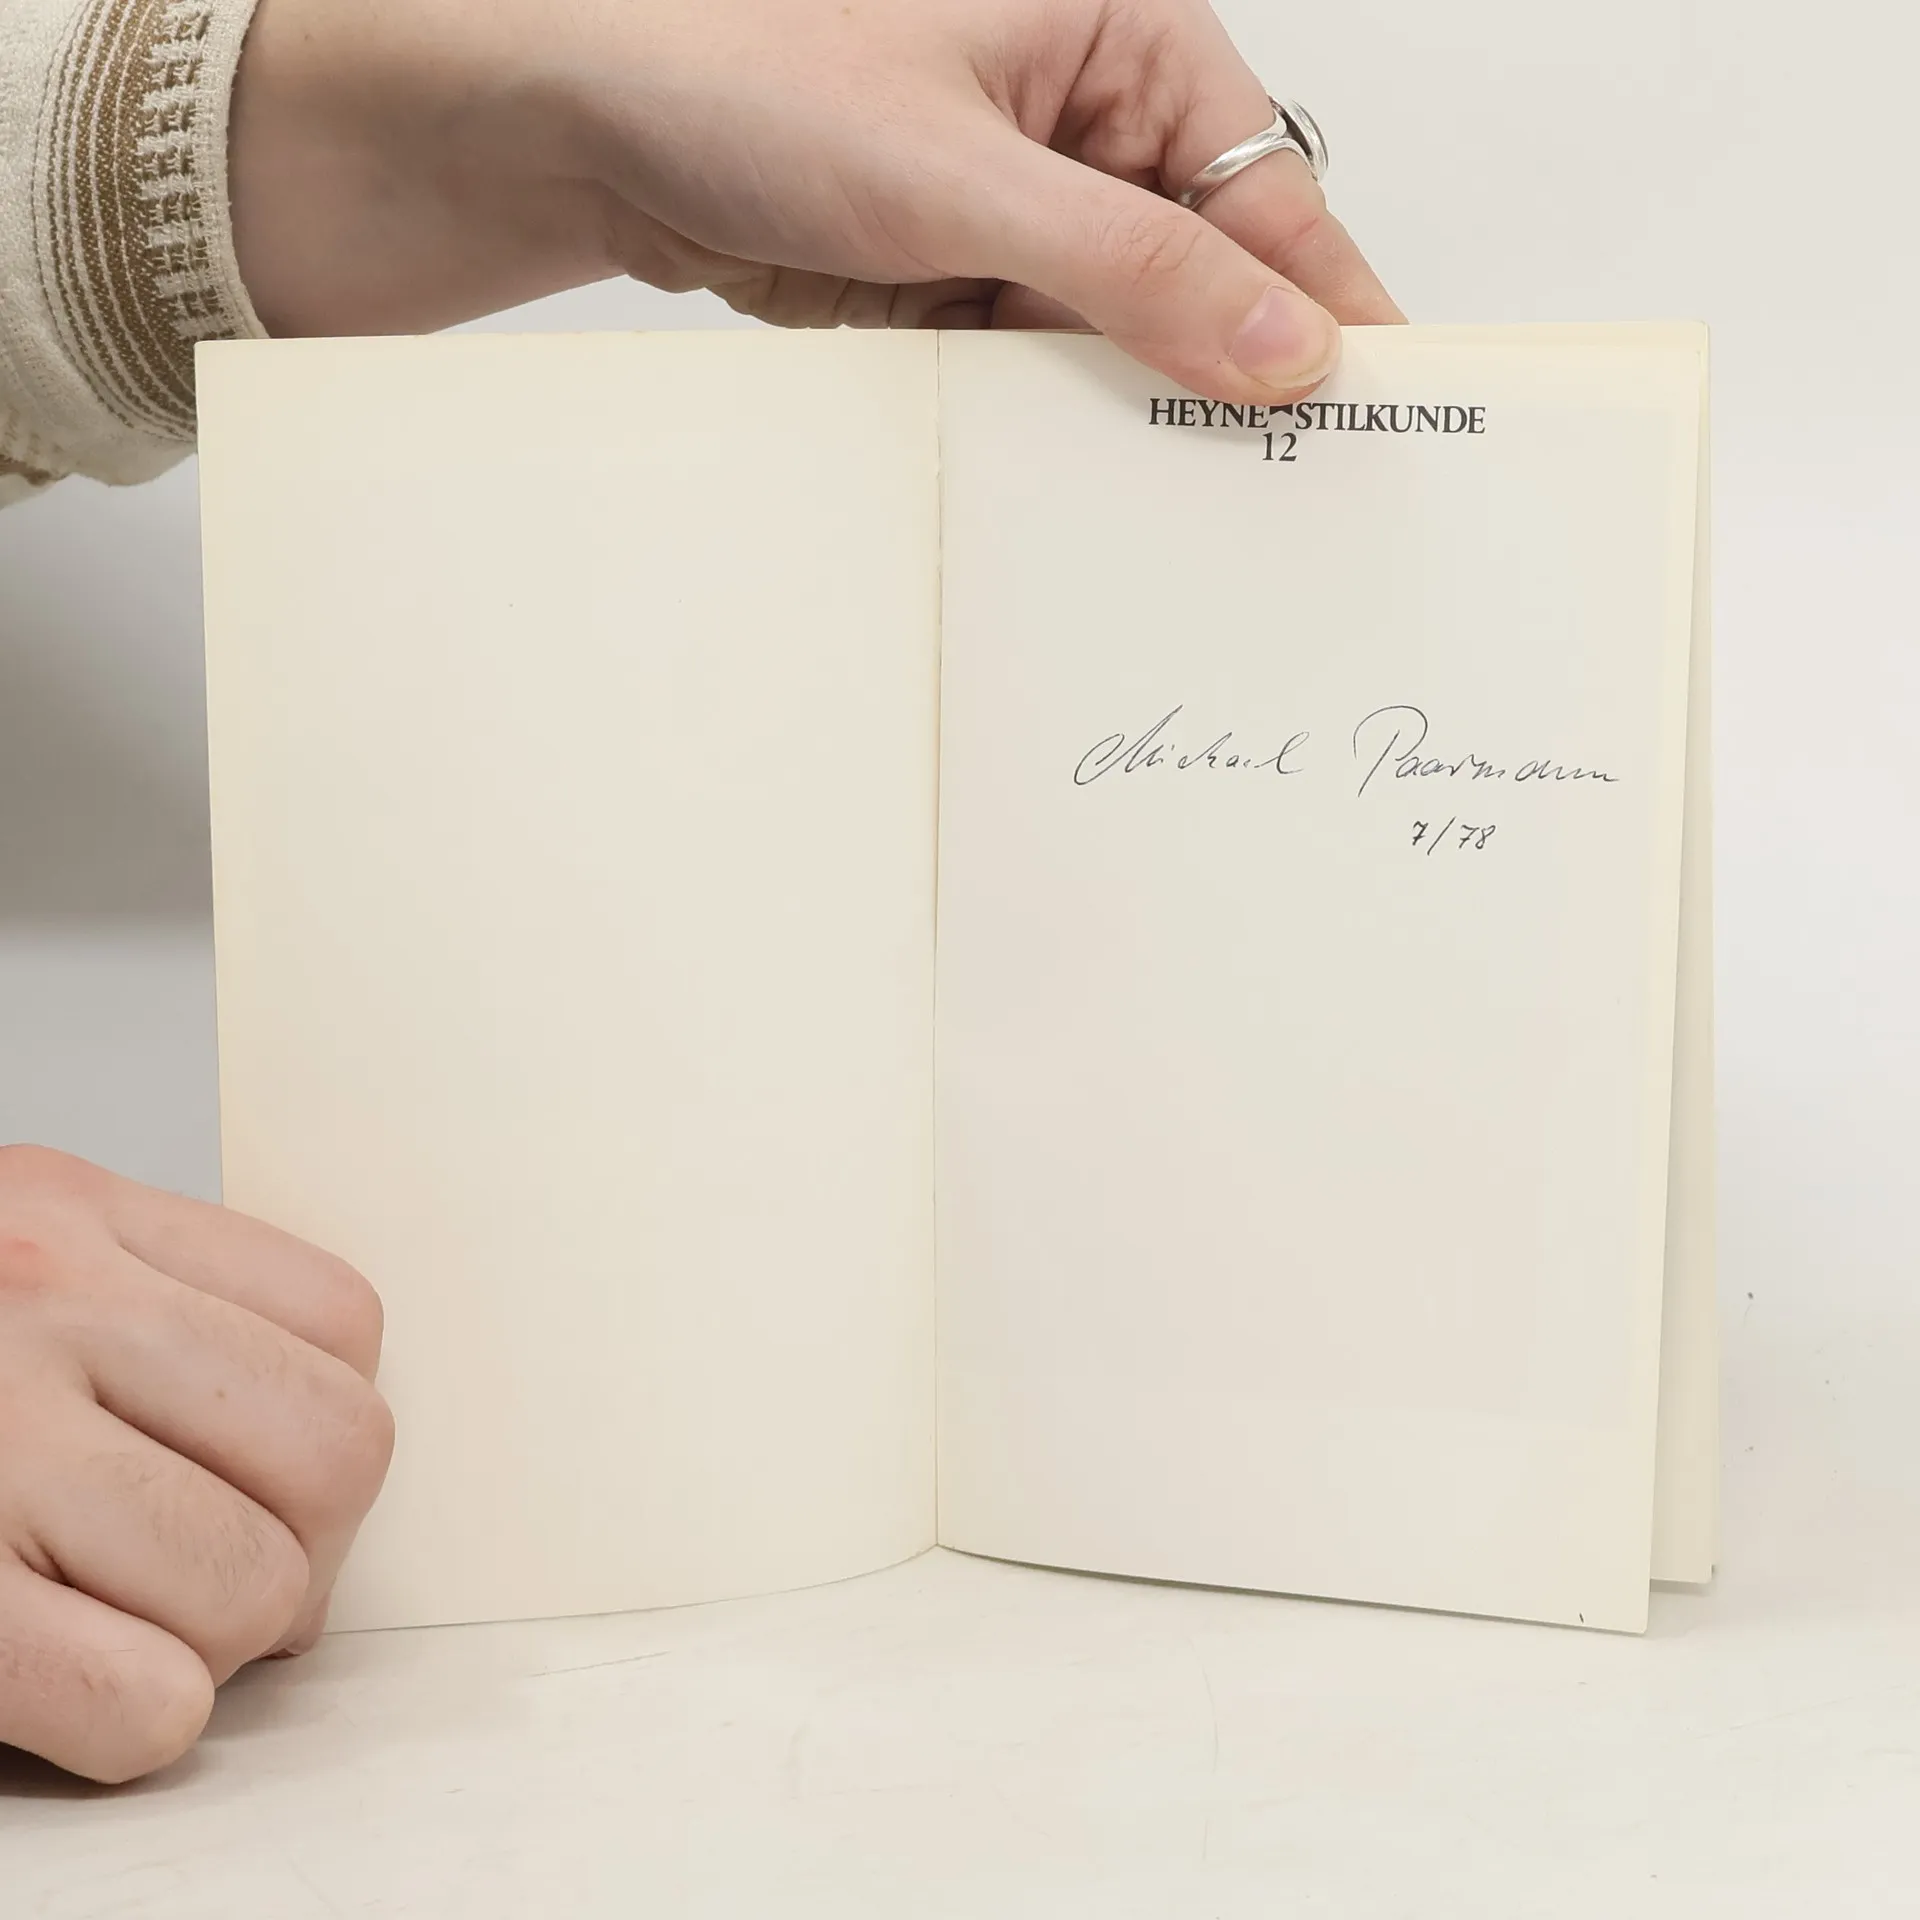 HEYNE STILKUNDE
12
Michael Paarmann
7/78